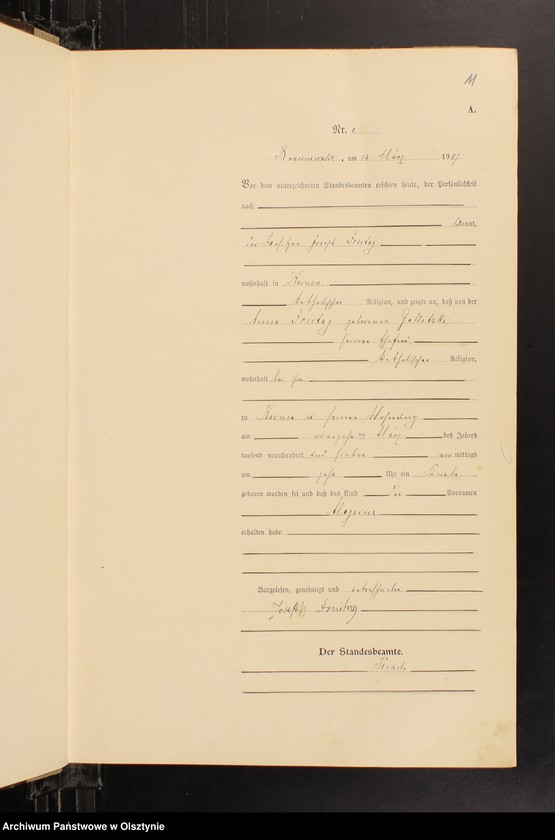 11
A.
Nr. 8
Braunswalde, am 16. März 1907
Vor dem unterzeichneten Standesbeamten erschien heute, der Persönlichkeit
nach
bekannt,
der Besitzer Joseph Freitag
wohnhaft in Kainen
katholischer Religion, und zeigte an, daß von der
Anna Freitag geborenen
seiner Ehefrau
katholischer Religion,
wohnhaft bei ihm
zu Kainen in seiner Wohnung
am März des Jahres
tausend neunhundert und sieben vormittags
um zehn Uhr ein Knabe
geboren worden sei und daß das Kind den Vornamen
Aloysius
erhalten habe.
Vorgelesen, genehmigt und unterschrieben
Joseph Freitag
Der Standesbeamte.
Archiwum Państwowe w Olsztynie